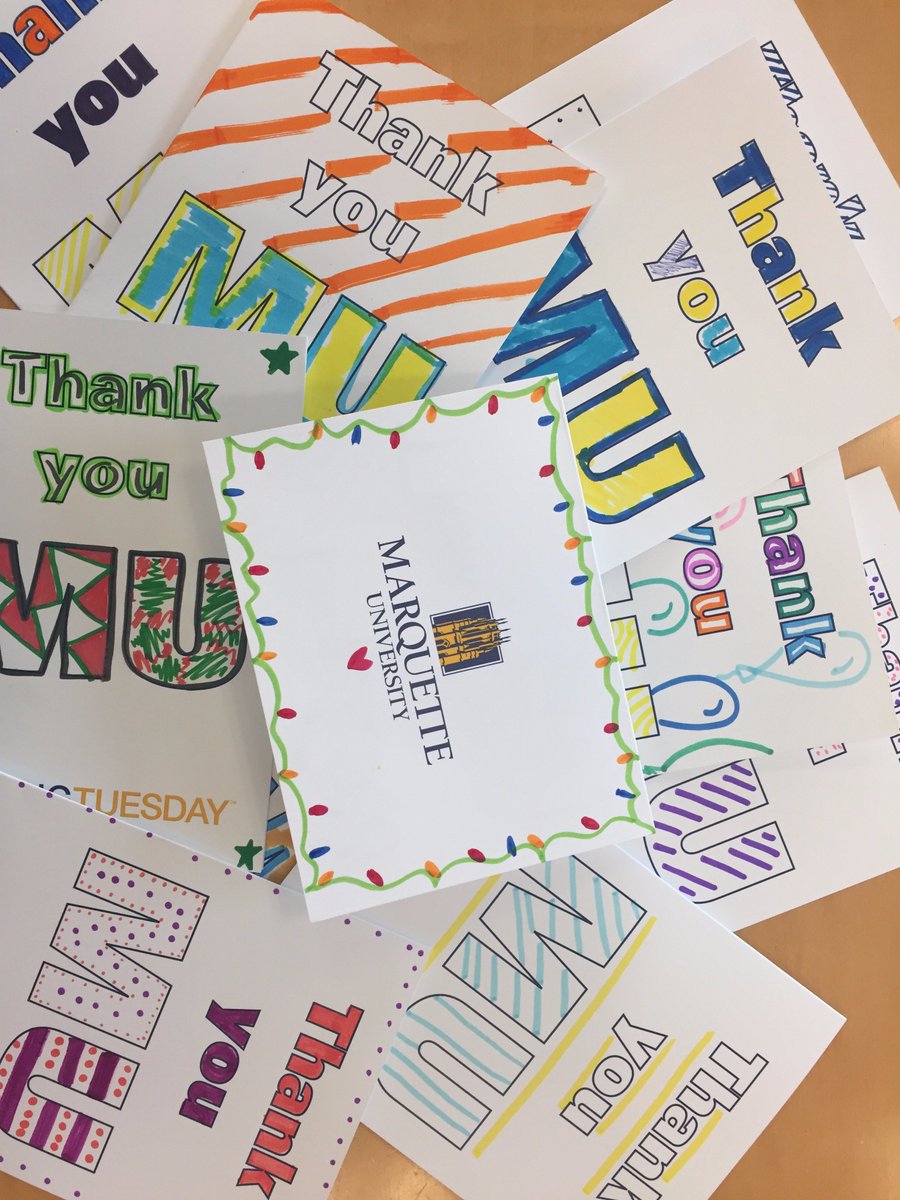 you
Thank
you
MU
Thank
you
MU
Thank
you
MU
TUESDAY™
MARQUETTE
UNIVERSITY
Thank
you
U
Thank
you
MU
Thank
you
MU